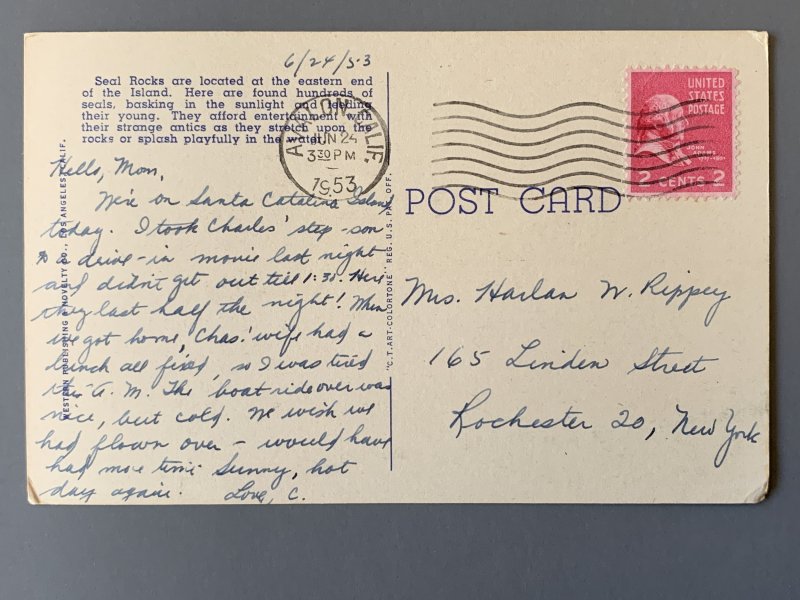 6/24/53
Seal Rocks are located at the eastern end
of the Island. Here are found hundreds of
seals, basking in the sunlight and feeding
their young. They afford entertainment with
their strange antics as they stretch upon the
rocks or splash playfully in the water.
AVALON, CALIF.
JUN 24
3 30 PM
1953
UNITED
STATES
POSTAGE
JOHN
ADAMS
2 CENTS 2
POST CARD
Hello, Mom,
We're on Santa Catalina Island
today. I took Charles' step-son
to a drive-in movie last night
and didn't get out till 1:30. Here
they last half the night! When
we got home, Chas.' wife had a
lunch all fixed, so I was tired
this A.M. The boat ride over was
nice, but cold. We wish we
had flown over - would have
had more time. Sunny, hot
day again. Love, C.
WESTERN PUBLISHING & NOVELTY CO., LOS ANGELES, CALIF.
"C.T. ART-COLORTONE" REG. U.S. PAT. OFF.
Mrs. Harlan W. Rippey
165 Linden Street
Rochester 20, New York